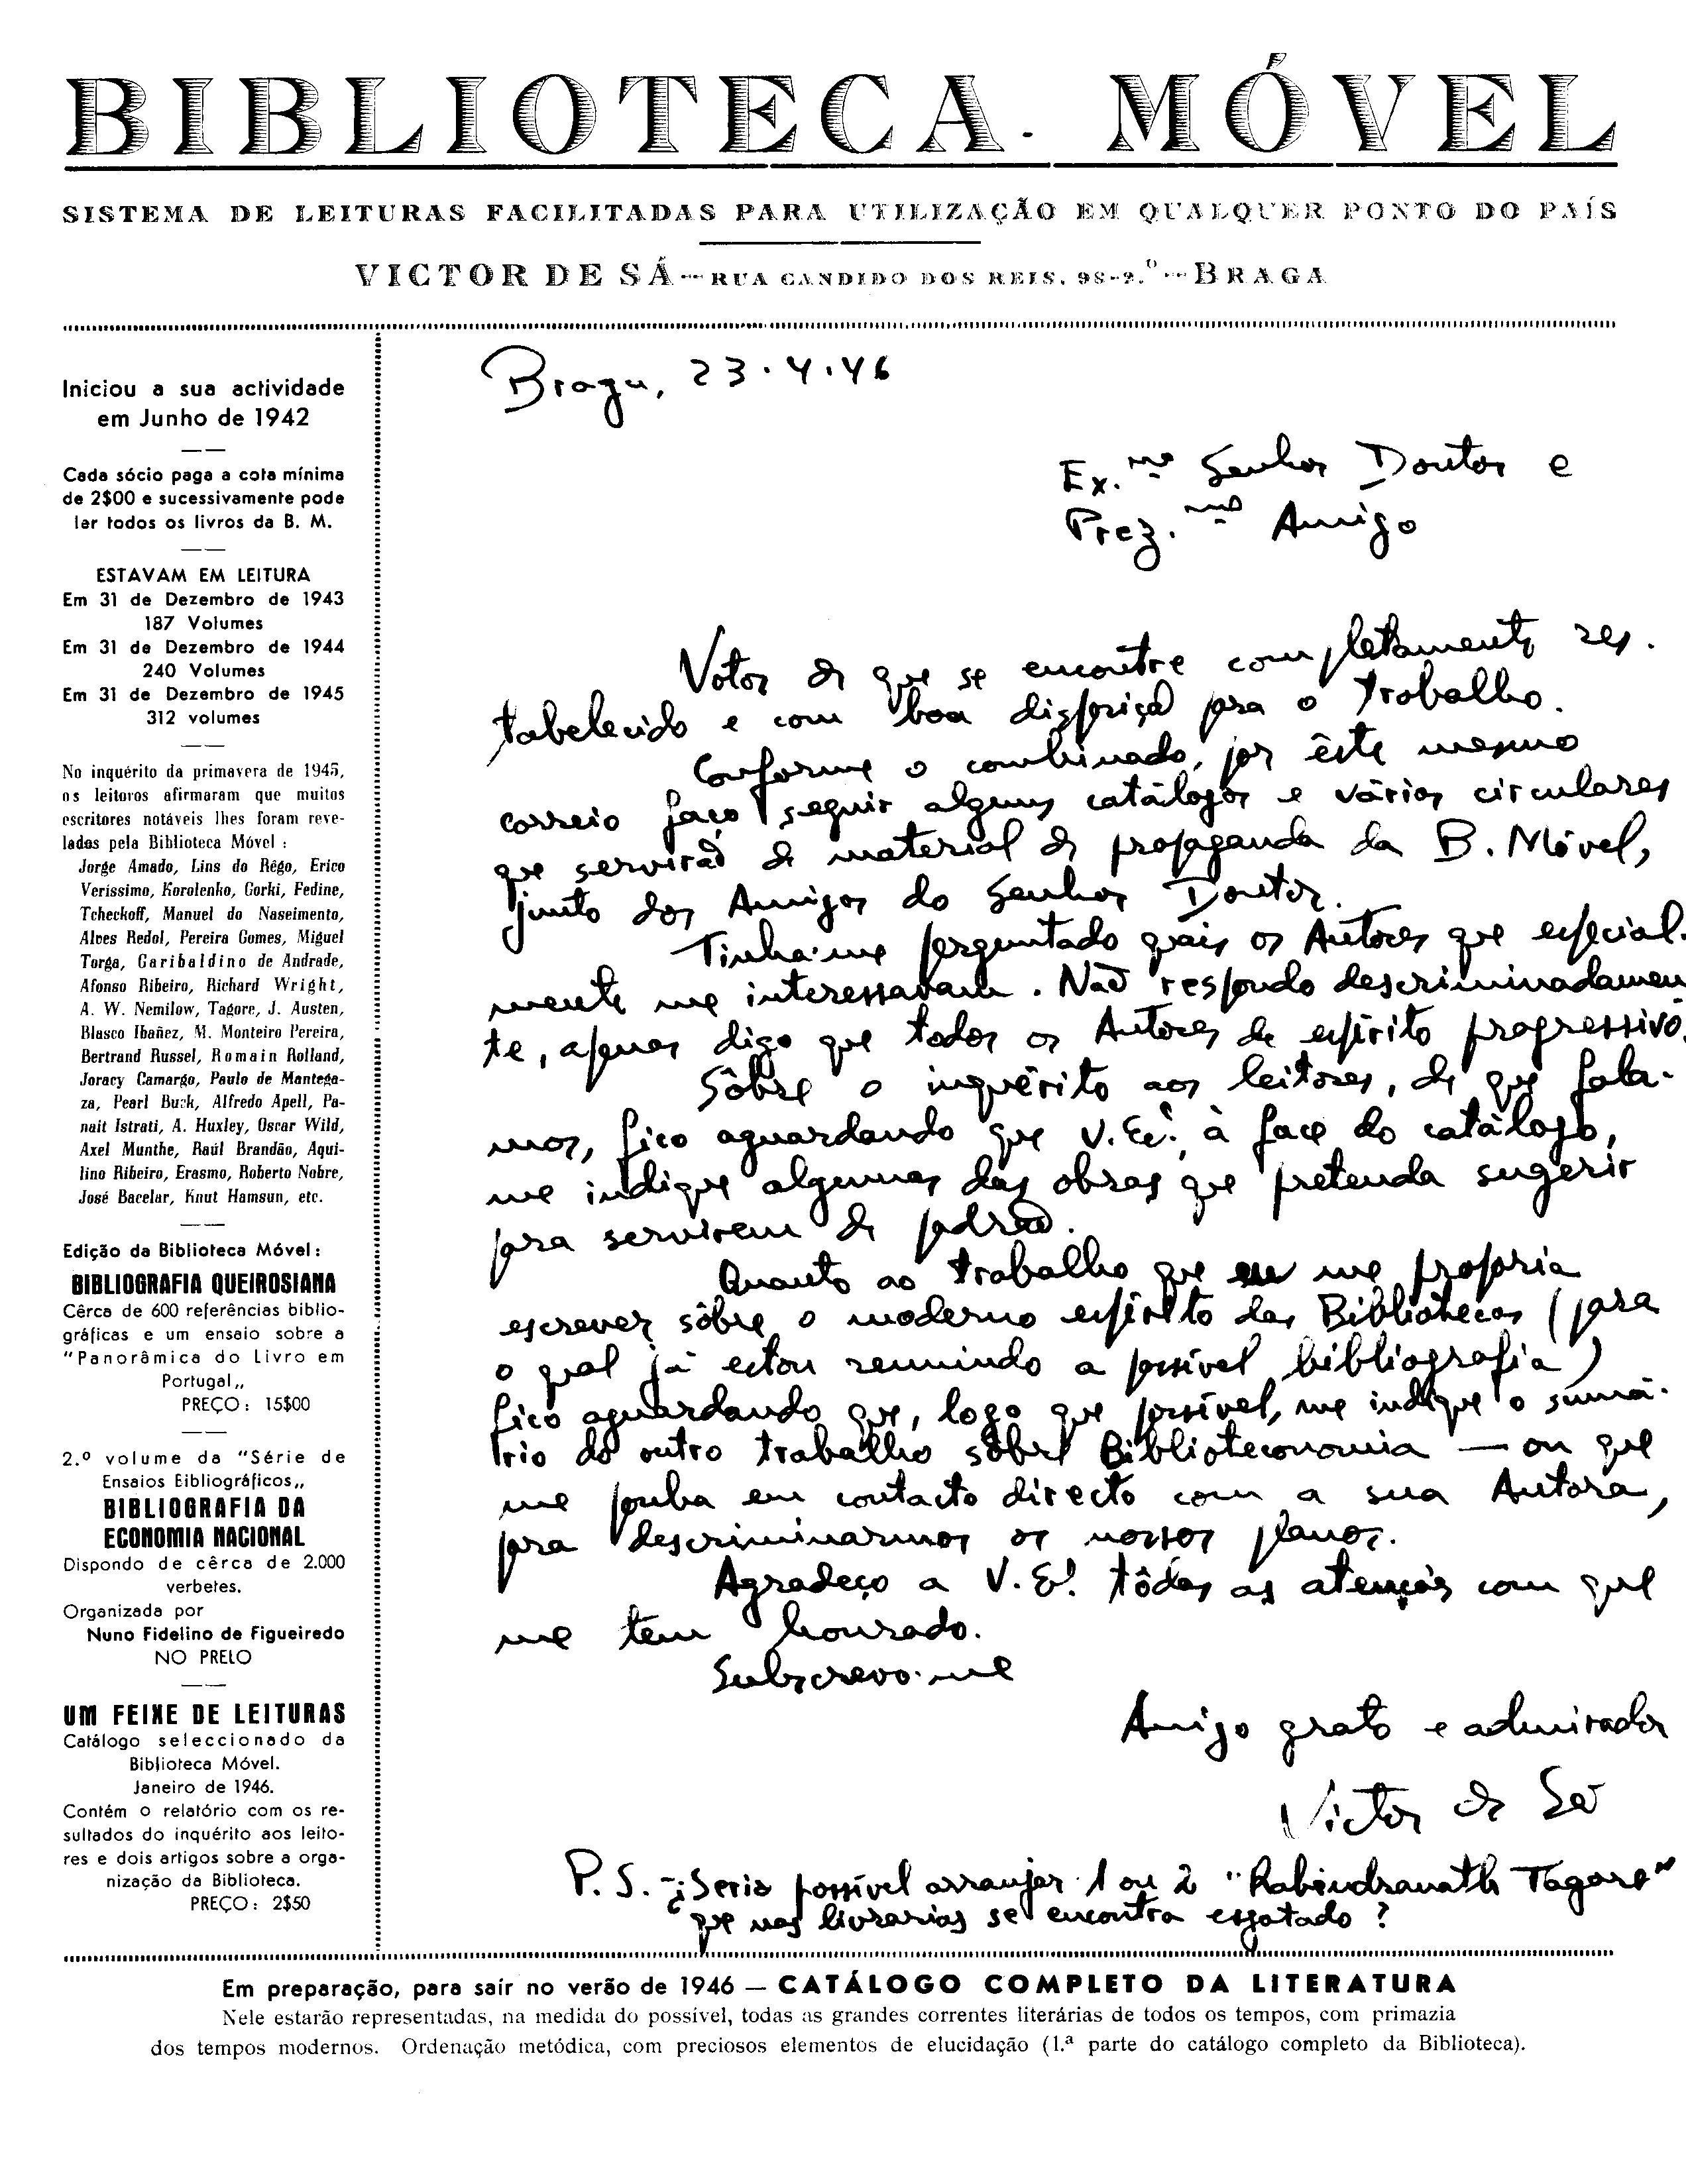 BIBLIOTECA MÓVEL
SISTEMA DE LEITURAS FACILITADAS PARA UTILIZAÇÃO EM QUALQUER PONTO DO PAÍS
VICTOR DE SÁ — RUA CANDIDO DOS REIS, 98-2.º — BRAGA
Iniciou a sua actividade
em Junho de 1942
Cada sócio paga a cota mínima
de 2$00 e sucessivamente pode
ler todos os livros da B. M.
ESTAVAM EM LEITURA
Em 31 de Dezembro de 1943
187 Volumes
Em 31 de Dezembro de 1944
240 Volumes
Em 31 de Dezembro de 1945
312 volumes
No inquérito da primavera de 1945,
os leitores afirmaram que muitos
escritores notáveis lhes foram reve-
lados pela Biblioteca Móvel :
Jorge Amado, Lins do Rêgo, Erico
Veríssimo, Korolenko, Gorki, Fedine,
Tcheckoff, Manuel do Nascimento,
Alves Redol, Pereira Gomes, Miguel
Torga, Garibaldino de Andrade,
Afonso Ribeiro, Richard Wright,
A. W. Nemilow, Tagore, J. Austen,
Blasco Ibañez, M. Monteiro Pereira,
Bertrand Russel, Romain Rolland,
Joracy Camargo, Paulo de Mantega-
za, Pearl Buck, Alfredo Apell, Pa-
nait Istrati, A. Huxley, Oscar Wild,
Axel Munthe, Raúl Brandão, Aqui-
lino Ribeiro, Erasmo, Roberto Nobre,
José Bacelar, Knut Hamsun, etc.
Edição da Biblioteca Móvel :
BIBLIOGRAFIA QUEIROSIANA
Cêrca de 600 referências biblio-
gráficas e um ensaio sobre a
"Panorâmica do Livro em
Portugal„
PREÇO : 15$00
2.º volume da "Série de
Ensaios Bibliográficos„
BIBLIOGRAFIA DA
ECONOMIA NACIONAL
Dispondo de cêrca de 2.000
verbetes.
Organizada por
Nuno Fidelino de Figueiredo
NO PRELO
UM FEIXE DE LEITURAS
Catálogo seleccionado da
Biblioteca Móvel.
Janeiro de 1946.
Contém o relatório com os re-
sultados do inquérito aos leito-
res e dois artigos sobre a orga-
nização da Biblioteca.
PREÇO : 2$50
Braga, 23.4.46
Ex.mo Senhor Doutor e
Prez.mo Amigo
Votos de que se encontre completamente res-
tabelecido e com boa disposição para o trabalho.
Conforme o combinado, por êste mesmo
correio faço seguir alguns catálogos e vários circulares
que servirão de material de propaganda da B. Móvel,
junto dos Amigos do Senhor Doutor.
Tinha-me perguntado quais os Autores que especial-
mente me interessavam. Não respondo descriminadamen
te, apenas digo que todos os Autores de espírito progressivo.
Sôbre o inquérito aos leitores, de que fala-
mos, fico aguardando que V. Exª, à face do catálogo,
me indique algumas das obras que pretenda sugerir
para servirem de padrão.
Quanto ao trabalho que me propria
escrever sôbre o moderno espírito das Bibliotecas (para
o qual já estou reunindo a possível bibliografia)
fico aguardando que, logo que possível, me indique o sumá-
rio do outro trabalho sôbre Biblioteconomia — ou que
me ponha em contacto directo com a sua Autora,
para descriminarmos os nossos planos.
Agradeço a V. Exª tôdas as atenções com que
me tem honrado.
Subscrevo-me
Amigo grato e admirador
Victor de Sá
P. S. - ¿Seria possível arranjar 1 ou 2 "Rabindranath Tagore"
que nas livrarias se encontra esgotado ?
Em preparação, para sair no verão de 1946 — CATÁLOGO COMPLETO DA LITERATURA
Nele estarão representadas, na medida do possível, todas as grandes correntes literárias de todos os tempos, com primazia
dos tempos modernos. Ordenação metódica, com preciosos elementos de elucidação (1.ª parte do catálogo completo da Biblioteca).